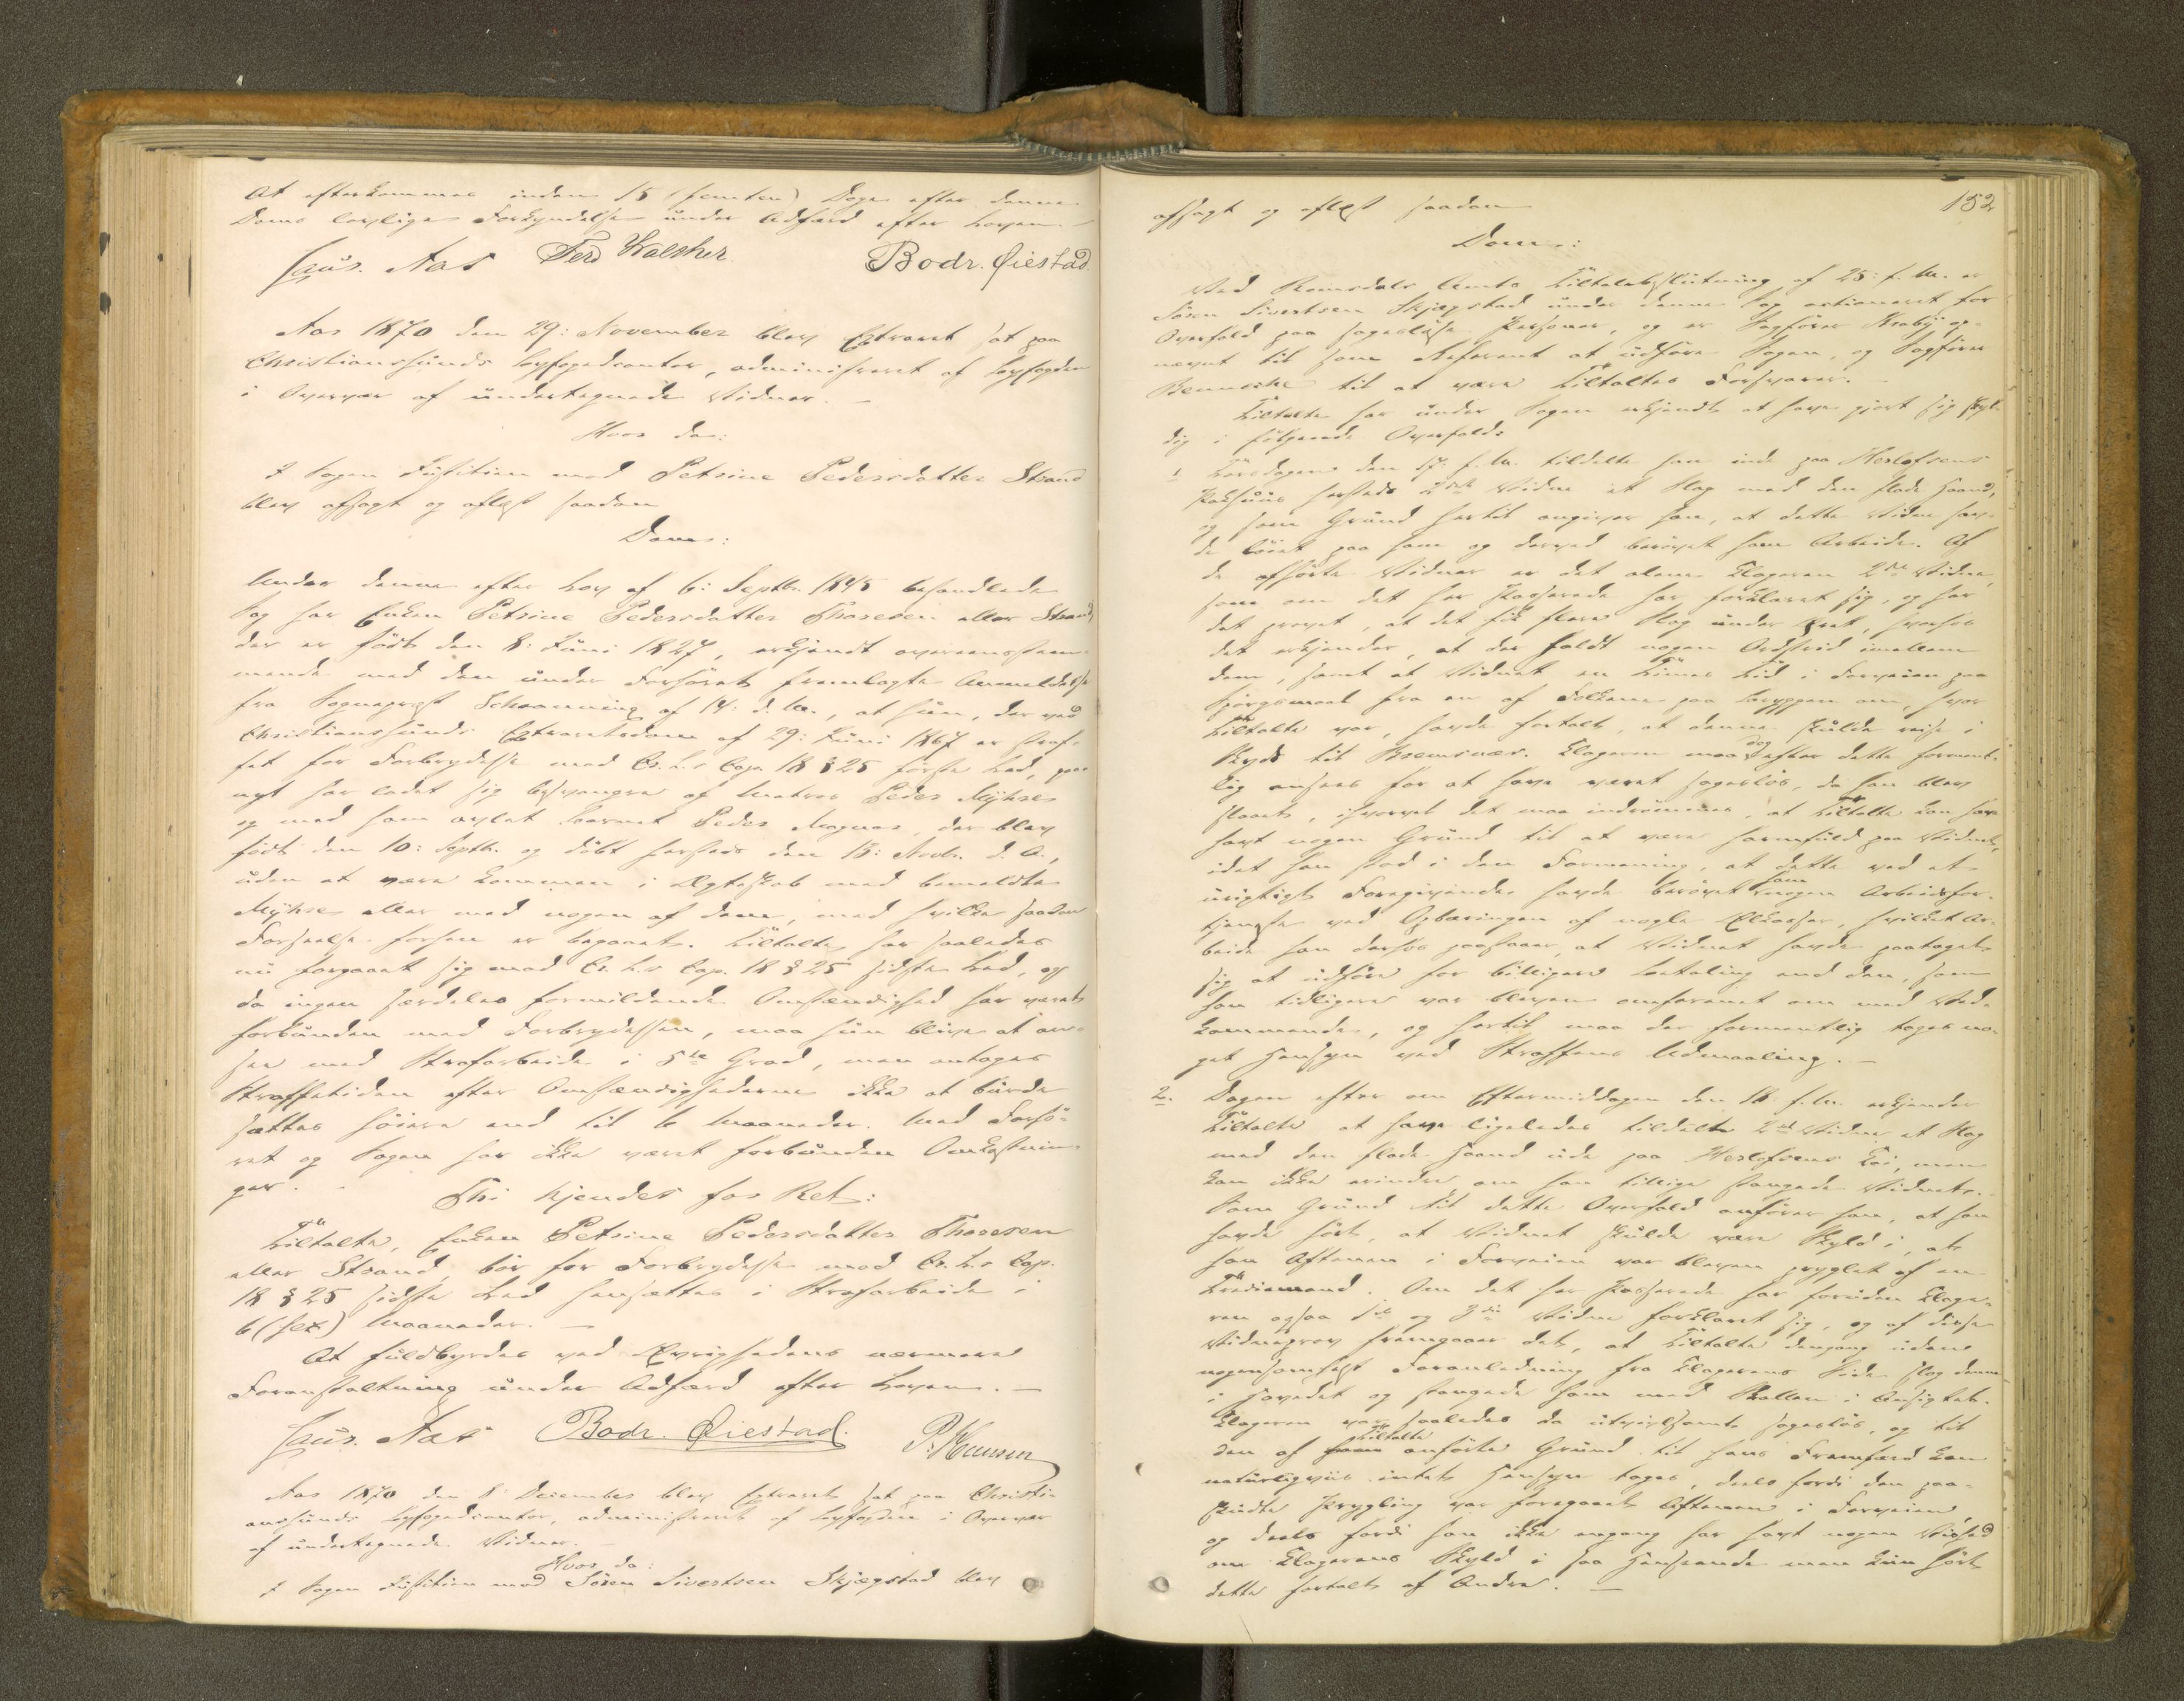 At efterkommes inden 15 (femten) Dage efter denne
Doms lovlige Forkyndelse under Adfærd efter Loven. –
Laur. Aas Ferd Walsher Bodr. Øiestad
Aar 1870 den 29: November blev Extraret sat paa
Christianssunds Byfogedcontor, administreret af Byfogden
i Overvær af undertegnede Vidner. –
Hvor da:
I Sagen Justitien mod Petrine Pedersdatter Strand
blev afsagt og aflæst saadan
Dom:
Under denne efter Lov af 6: Septbr. 1845 behandlede
Sag har Enken Petrine Pedersdatter Thoresen eller Strand,
der er født den 8: Juni 1827, erkjendt overensstem-
mende med den under Forhøret fremlagte Anmeldelse
fra Sognepræst Schanning af 14: d. M., at hun, der ved
Christianssunds Extraretsdom af 29: Juni 1867 er straf-
fet for Forbrydelse mod Cr. L.s Cap. 18 § 25 første Led, paa
nyt har ladet sig besvangre af Matros Peder Myhre
og med ham avlet Barnet Peder Magnus, der blev
født den 10: Septbr. og døbt hersteds den 13: Novbr. d. A.,
uden at være kommen i Ægteskab med bemeldte
Myhre eller med nogen af dem, med hvilke saadan
Forseelse forhen er begaaet. Tiltalte har saaledes
nu forgaaet sig mod Cr. L.s Cap. 18 § 25 sidste Led, og
da ingen særdeles formildende Omstændighed har været
forbunden med Forbrydelsen, maa hun blive at an-
see med Strafarbeide i 5te Grad, men antages
Straffetiden efter Omstændighederne ikke at burde
sættes høiere end til 6 Maaneder. Med Forhø-
ret og Sagen har ikke været forbunden Omkostnin-
ger. –
Thi kjendes for Ret:
Tiltalte, Enken Petrine Pedersdatter Thoresen
eller Strand bør for Forbrydelse mod Cr. L.s Cap.
18 § 25 sidste Led hensættes i Strafarbeide i
6 (sex) Maaneder. –
At fuldbyrdes ved Øvrighedens nærmere
Foranstaltning under Adfærd efter Loven. –
Laur. Aas Bodr. Øiestad. P. Hansen
Aar 1870 den 8 December blev Extraret sat paa Christi-
anssunds Byfogedcontor, administreret af Byfogden i Overvær
af undertegnede Vidner. –
Hvor da:
I Sagen Justitien mod Søren Sivertsen Skjægstad blev
152
afsagt og aflæst saadan
Dom:
Ved Romsdals Amts Tiltalebeslutning af 25: f. M. er
Søren Sivertsen Skjægstad under denne Sag actioneret for
Overfald paa sagesløse Personer, og er Sagfører Kraby op-
nævnt til som Referent at udføre Sagen, og Sagfører
Benneche til at være Tiltaltes Forsvarer. –
Tiltalte har under Sagen erkjendt at have gjort sig skyl-
dig i følgende Overfald:
1 Torsdagen den 17. f. M. tildelte han inde paa Herlofsens
Pakhuus hersteds 2det Vidne et Slag med den flade Haand,
og som Grund hertil angiver han, at dette Vidne hav-
de løiet paa ham og derved berøvet ham Arbeide. Af
de afhørte Vidner er det alene Klageren 2det Vidne,
som om det her Passerede har forklaret sig, og har
det provet, at det fik flere Slag under Øret, hvorhos
det erkjender, at der faldt nogen Ordstrid imellem
dem, samt at Vidnet en Times Tid i Forveien paa
Spørgsmaal fra en af Folkene paa Bryggen om, hvor
Tiltalte var, havde fortalt, at denne skulde reise i
Skyds til Bremsnæs. Klageren maa dog efter dette forment-
lig ansees for at have været sagesløs, da han blev
slaaet, ihvorvel det maa indrømmes, at Tiltalte kan have
havt nogen Grund til at være harmfuld paa Vidnet,
idet han stod i den Formening, at dette ved et
urigtigt Foregivende havde berøvet ham nogen Arbeidsfor-
tjeneste ved Opbæringen af nogle Ølkasser, hvilket Ar-
beide han derhos paastaar, at Vidnet havde paataget
sig at udføre for billigere Betaling end den, som
han tidligere var bleven omforenet om med Ved-
kommende, og hertil maa der formentlig tages no-
get Hensyn ved Straffens Udmaaling. –
2. Dagen efter om Eftermiddagen den 18. f. M. erkjender
Tiltalte at have ligeledes tildelt 2det Vidne et Slag
med den flade Haand ude paa Herlofsens Kai, men
kan ikke erindre om han tillige stangede Vidnet. –
Som Grund til dette Overfald anfører han, at han
havde hørt, at Vidnet skulde være Skyld i, at
han Aftenen i Forveien var bleven pryglet af en
Trediemand. Om det her Passerede har foruden Klage-
ren ogsaa 1ste og 3die Vidne forklaret sig, og af disse
Vidneprov fremgaaer det, at Tiltalte dengang uden
nogensomhelst Foranledning fra Klagerens Side slog denne
i Hovedet og stangede ham med Skallen i Ansigtet.
Klageren var saaledes da utvivlsomt sagesløs, og til
den af Tiltalte anførte Grund til hans Fremfærd kan
naturligviis intet Hensyn tages, deels fordi den paa-
skudte Prygling var foregaaet Aftenen i Forveien,
og deels fordi han ikke engang har havt nogen Vished
om Klagerens Skyld i saa Henseende men kun hørt
dette fortalt af Andre. –